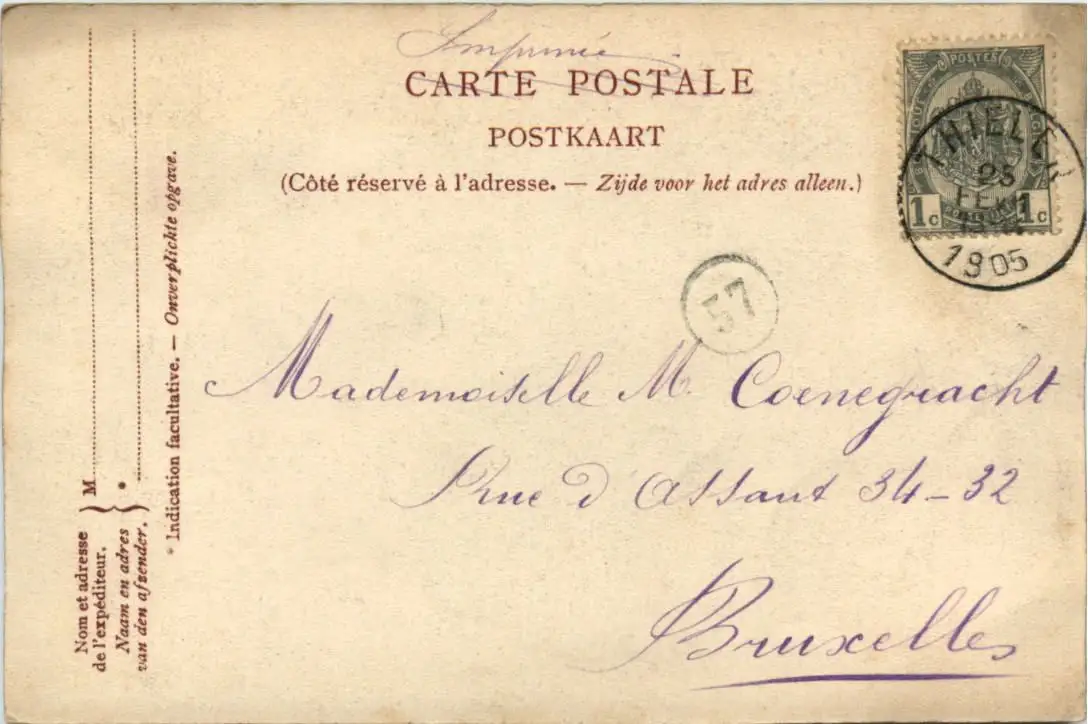 Imprimé
CARTE POSTALE
POSTKAART
(Côté réservé à l'adresse. — Zijde voor het adres alleen.)
POSTES
1c 1c
THIELEN
25
1905
57
Mademoiselle M. Coenegracht
Rue d'Assaut 34-32
Bruxelles
Nom et adresse
de l'expéditeur.
Naam en adres
van den afzender.
M
*
* Indication facultative. — Onverplichte opgave.